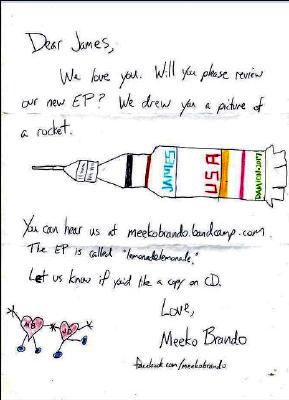 Dear James,
We love you. Will you please review
our new EP? We drew you a picture of
a rocket.
JAMES
USA
You can hear us at meekobrando.bandcamp.com.
The EP is called "lemonadelemonade."
Let us know if you'd like a copy on CD.
Love,
Meeko Brando
facebook.com/meekobrando
MB